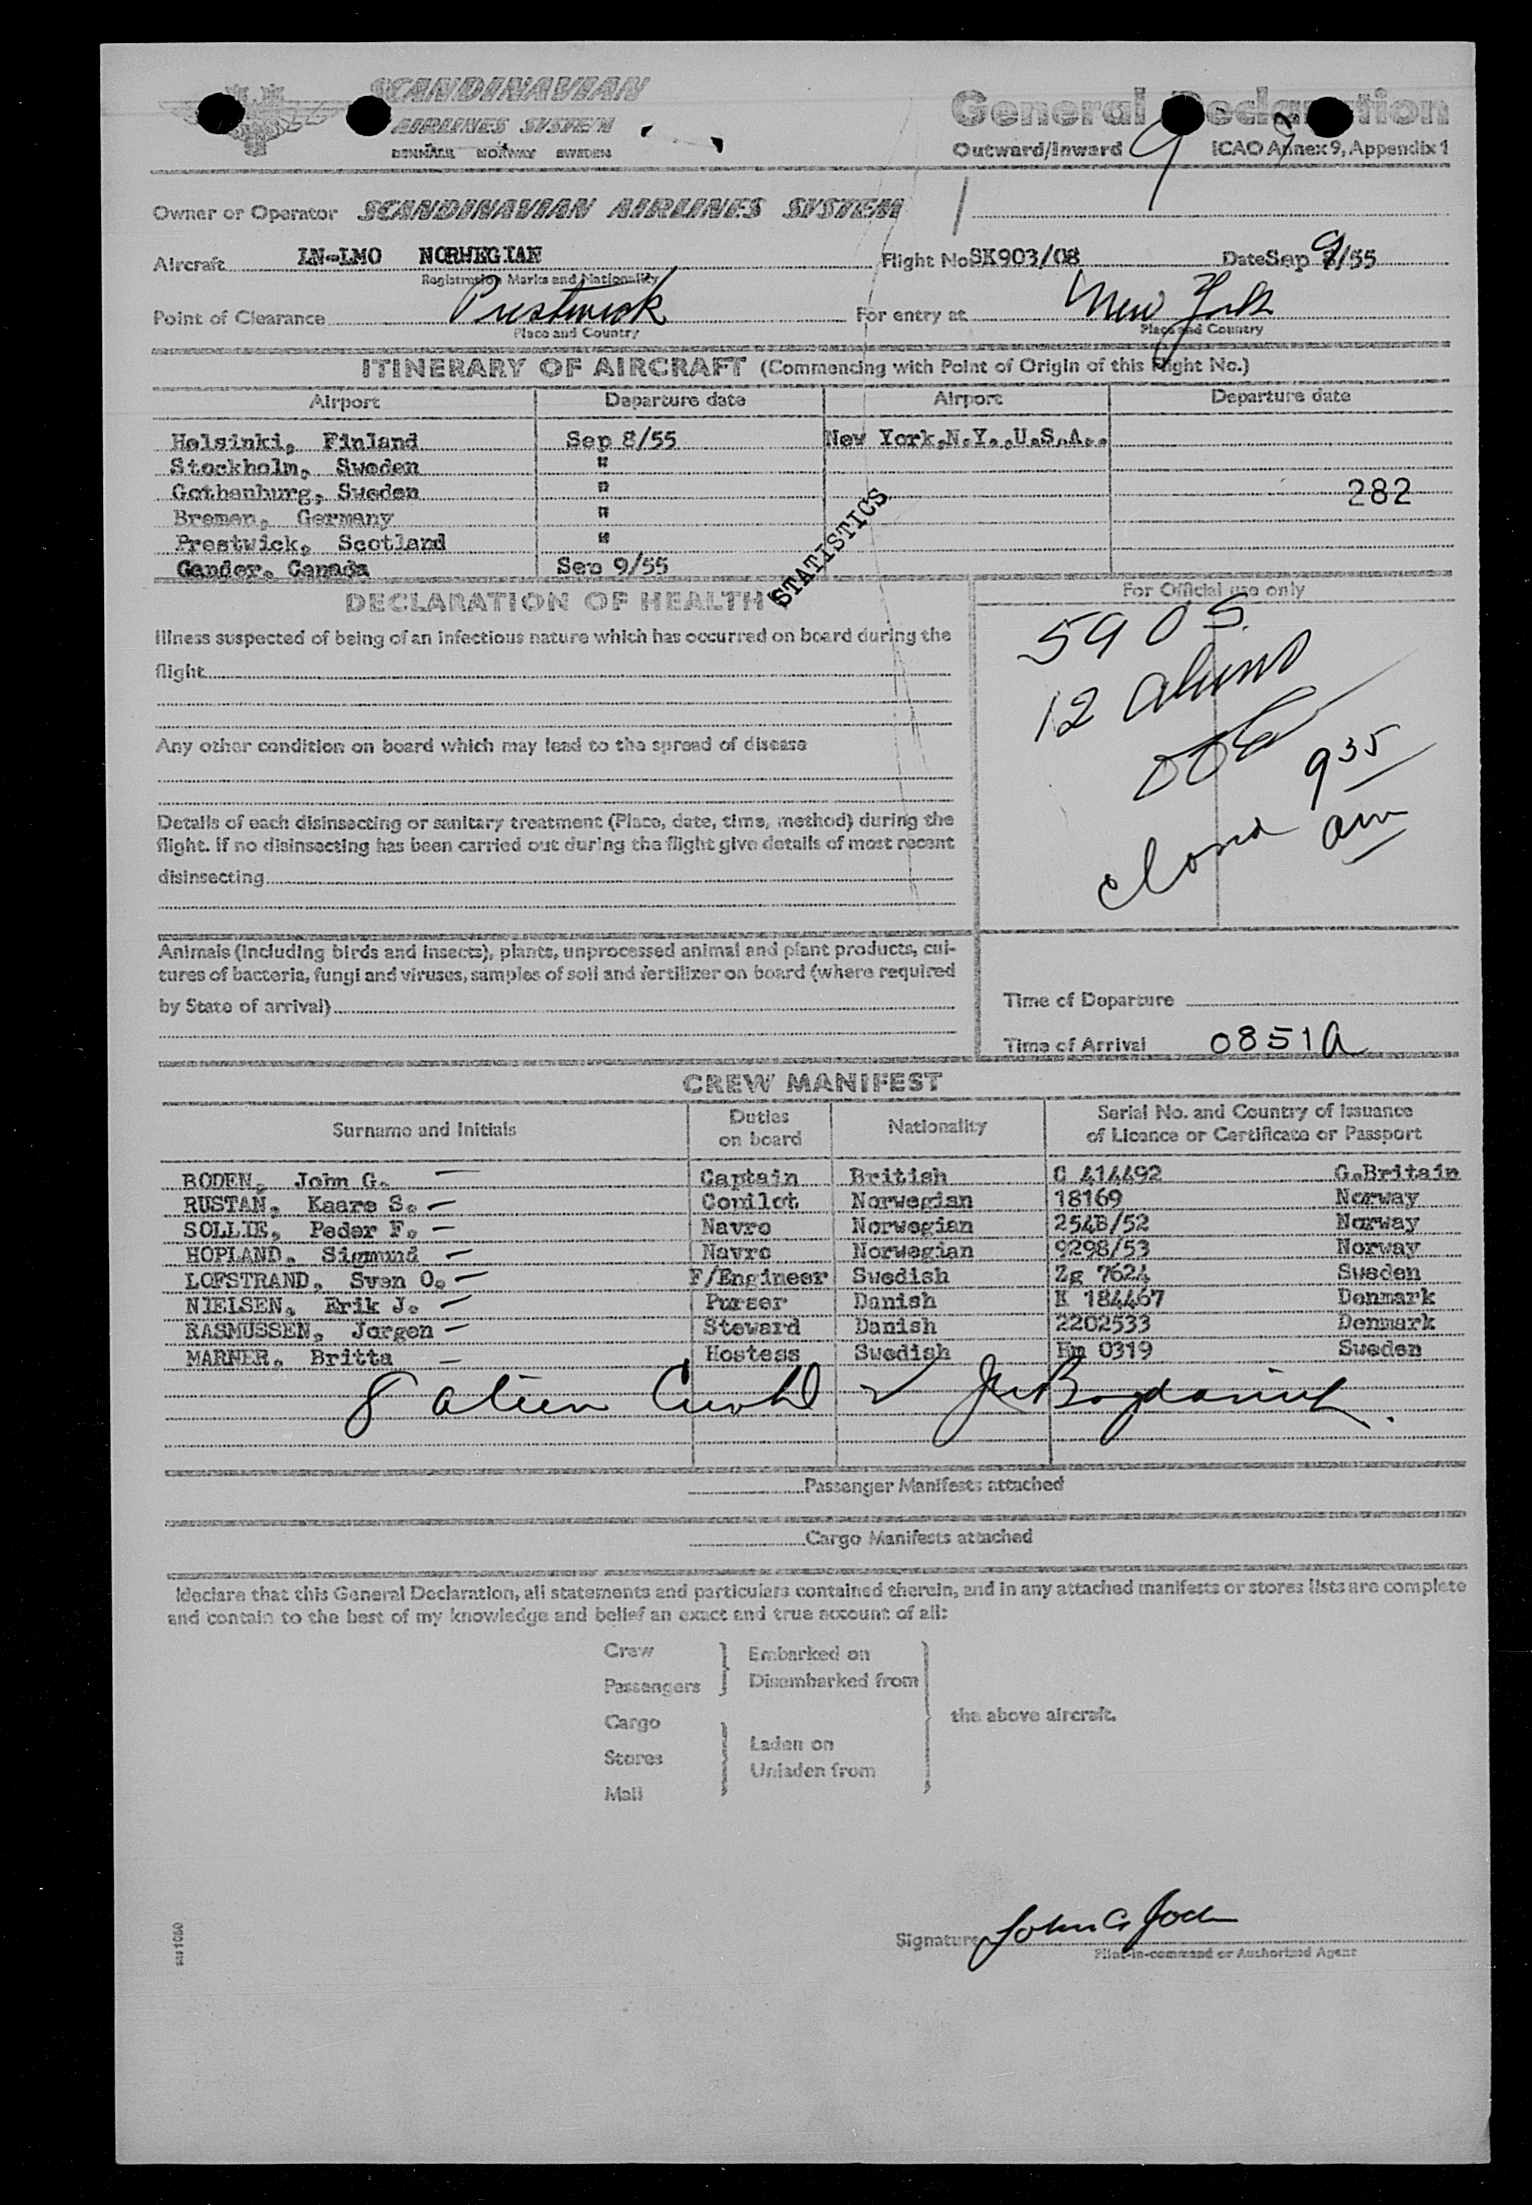 SCANDINAVIAN
AIRLINES SYSTEM
DENMARK NORWAY SWEDEN
General Declaration
Outward/Inward 9
ICAO Annex 9, Appendix 1
Owner or Operator SCANDINAVIAN AIRLINES SYSTEM
Aircraft LN-LMO NORWEGIAN Flight No SK903/08 Date Sep 9/55
Registration Marks and Nationality
Point of Clearance Prestwick For entry at New York
Place and Country Place and Country
ITINERARY OF AIRCRAFT (Commencing with Point of Origin of this Flight No.)
Airport Departure date Airport Departure date
Helsinki, Finland Sep 8/55 New York,N.Y.,U.S.A..
Stockholm, Sweden "
Gothenburg, Sweden " 282
Bremen, Germany "
Prestwick, Scotland "
Gander, Canada Sep 9/55
STATISTICS
DECLARATION OF HEALTH
Illness suspected of being of an infectious nature which has occurred on board during the
flight
Any other condition on board which may lead to the spread of disease
Details of each disinsecting or sanitary treatment (Place, date, time, method) during the
flight. If no disinsecting has been carried out during the flight give details of most recent
disinsecting
Animals (including birds and insects), plants, unprocessed animal and plant products, cul-
tures of bacteria, fungi and viruses, samples of soil and fertilizer on board (where required
by State of arrival)
For Official use only
59 US
12 aliens
closed 935
am
Time of Departure
Time of Arrival 0851A
CREW MANIFEST
Surname and Initials Duties on board Nationality Serial No. and Country of Issuance of Licence or Certificate or Passport
BODEN, John G. — Captain British C 414492 G.Britain
RUSTAN, Kaare S. — Copilot Norwegian 18169 Norway
SOLLIE, Peder F. — Navro Norwegian 254B/52 Norway
HOPLAND, Sigmund — Navro Norwegian 9298/53 Norway
LOFSTRAND, Sven O. — F/Engineer Swedish Zg 7624 Sweden
NIELSEN, Erik J. — Purser Danish K 184467 Denmark
RASMUSSEN, Jorgen — Steward Danish 2202533 Denmark
MARNER, Britta — Hostess Swedish Hm 0319 Sweden
8 alien
Passenger Manifests attached
Cargo Manifests attached
I declare that this General Declaration, all statements and particulars contained therein, and in any attached manifests or stores lists are complete
and contain to the best of my knowledge and belief an exact and true account of all:
Crew
Passengers
Embarked on
Disembarked from
Cargo
Stores
Mail
Laden on
Unladen from
the above aircraft.
Signature John G Boden
Pilot-in-command or Authorized Agent